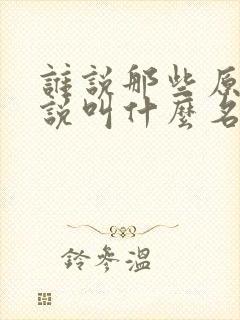 誰說那些原
說叫什麼名
鈴參溫